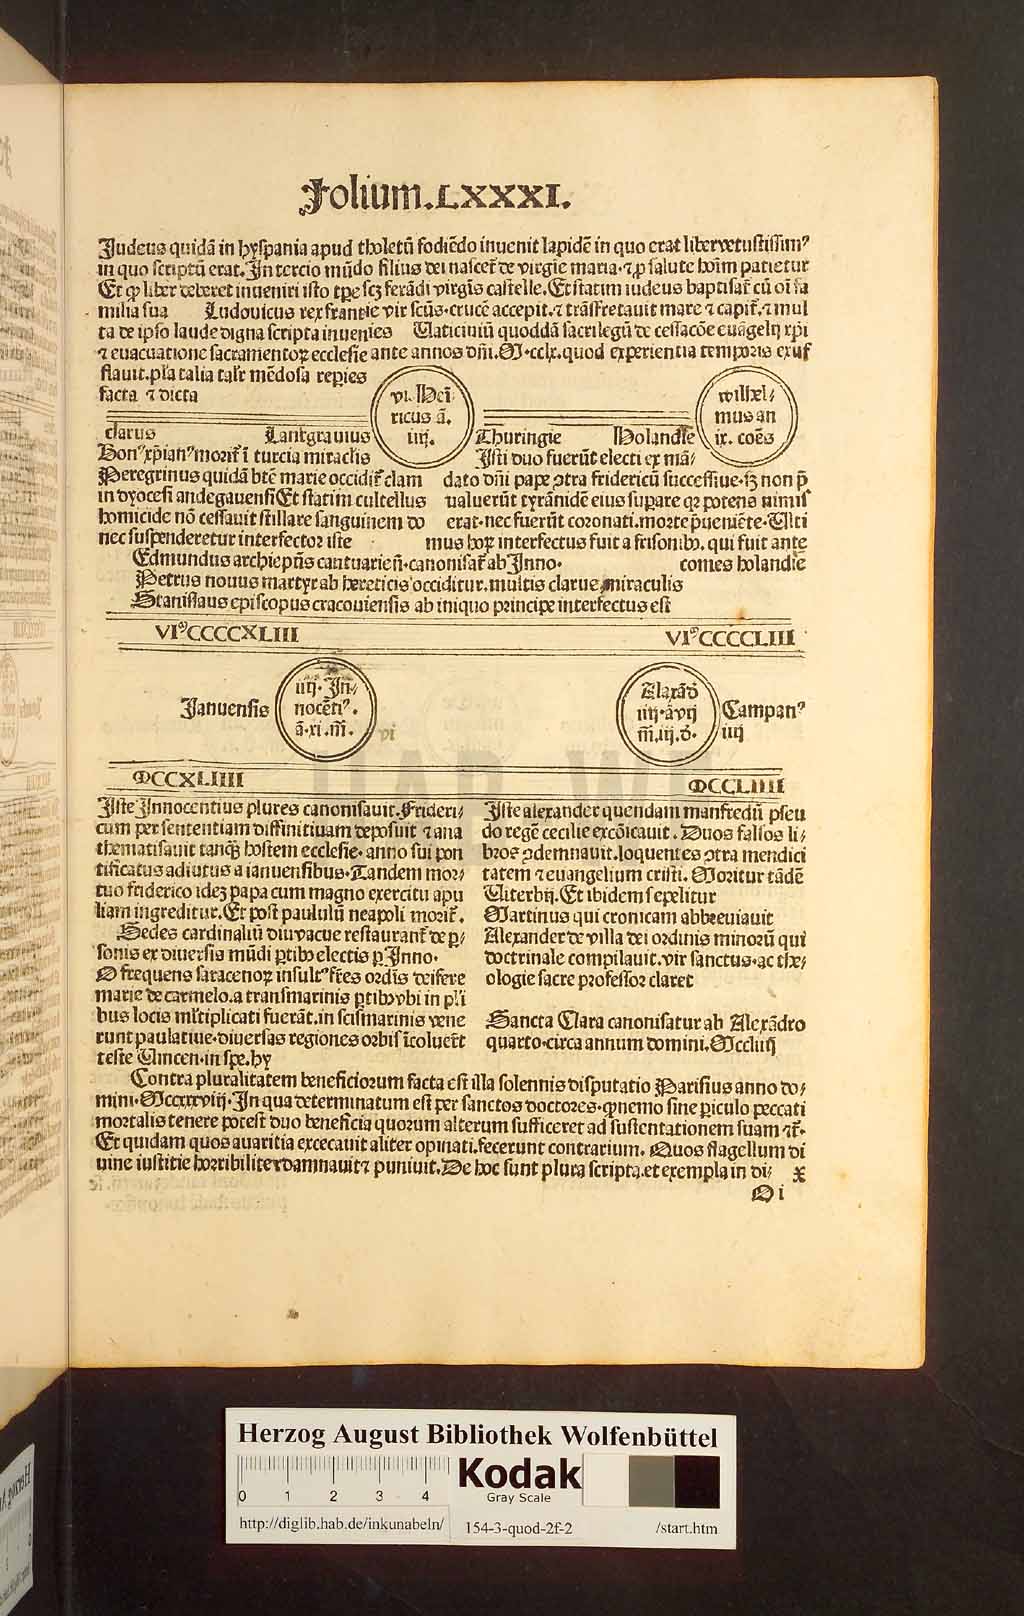 Folium.LXXXI.
Judeus quidā in hyspania apud tholetū fodiēdo inuenit lapidē in quo erat liber vetustissimꝰ
in quo scriptū erat. In tercio mūdo filius dei nascet̄ de virgīe maria·⁊ ꝓ salute hoīm patietur
Et ꝙ liber deberet inueniri isto tꝑe scꝫ ferādi virgīs castelle. Et statim iudeus baptisat̄ cū oī fa
milia sua Ludouicus rex frantie vir scūs·crucē accepit.⁊ trāsfretauit mare ⁊ capit̄.⁊ mul
ta de ipso laude digna scripta inuenies Uaticiniū quoddā sacrilegū de cessacōe euāgelij xp̄i
⁊ euacuatione sacramentoꝝ ecclesie ante annos dn̄i.M·cclx.quod experientia temporis exuf
flauit.pl̄a talia tal̄r mēdosa repies
facta ⁊ dicta
vi. Hei
ricus ā.
iiij.
wilhel/
mus an
ix. coēs
clarus Lantgrauius Thuringie Holandīe
Bonꝰ xp̄ianꝰ morit̄ ī turcia miraclis
Isti duo fuerūt electi ex mā/
Peregrinus quidā btē marie occidit̄ clam
dato dn̄i pape ꝯtra fridericū successiue·sꝫ non p̄
in dyocesi andegauensi Et statim cultellus
ualuerūt tyrānidē eius suꝑare qꝛ potens nimis
homicide nō cessauit stillare sanguinem do
erat·nec fuerūt coronati.morte p̄ueniēte·Ulti
nec suspenderetur interfector iste
mus hoꝝ interfectus fuit a frisonibꝰ. qui fuit ante
Edmundus archiep̄us cantuarien̄·canonisat̄ ab Inno·
comes holandīe
Petrus nouus martyr ab hereticis occiditur.multis clarus miraculis
Stanislaus episcopus cracouiensis ab iniquo principe interfectus est
VIᵐCCCCXLIII
VIᵐCCCCLIII
Januensis
iiij· In/
nocētiꝰ.
ā·xi.m̄.
Alexād̄
iiij·ā vij
m̄.iij.d̄·
Campanꝰ
iiij
MCCXLIIII
MCCLIIII
Iste Innocentius plures canonisauit.Frideri/
cum per sententiam diffinitiuam deposuit ⁊ ana
thematisauit tanqꝫ hostem ecclesie·anno sui pon
tificatus adiutus a ianuensibus·Tandem mor/
tuo friderico ideꝫ papa cum magno exercitu apu
liam ingreditur.Et post paululū neapoli morit̄.
Sedes cardinaliū diu vacue restaurant̄ de ꝑ/
sonis ex diuersis mūdi ꝑtibꝰ electis ꝑ Inno·
O frequens saracenoꝝ insultꝰ fr̄es ordīs deifere
marie de carmelo.a transmarinis ꝑtibꝰ vbi in pl̄i
bus locis ml̄tiplicati fuerāt.in scismarinis vene
runt paulatiue·diuersas regiones orbis īcoluer̄t
teste Uincen·in spe.hy
Iste alexander quendam manfredū pseu
do regē cecilie excōicauit. Duos falsos li/
bros ꝯdemnauit.loquentes ꝯtra mendici
tatem ⁊ euangelium cristi. Moritur tādē
Uiterbij.Et ibidem sepelitur
Martinus qui cronicam abbreuiauit
Alexander de villa dei ordinis minorū qui
doctrinale compilauit.vir sanctus·ac the/
ologie sacre professor claret
Sancta Clara canonisatur ab Alexādro
quarto·circa annum domini.Mccliiij
Contra pluralitatem beneficiorum facta est illa solennis disputatio Parisius anno do/
mini·Mccxxxviij·In qua determinatum est per sanctos doctores·ꝙ nemo sine ꝑiculo peccati
mortalis tenere potest duo beneficia quorum alterum sufficeret ad sustentationem suam ⁊t̄·
Et quidam quos auaritia excecauit aliter opinati.fecerunt contrarium. Quos flagellum di
uine iustitie horribiliter damnauit ⁊ puniuit.De hoc sunt plura scripta.et exempla in di/ x
Oi
Herzog August Bibliothek Wolfenbüttel
0 1 2 3 4
Kodak
Gray Scale
http://diglib.hab.de/inkunabeln/ 154-3-quod-2f-2 /start.htm